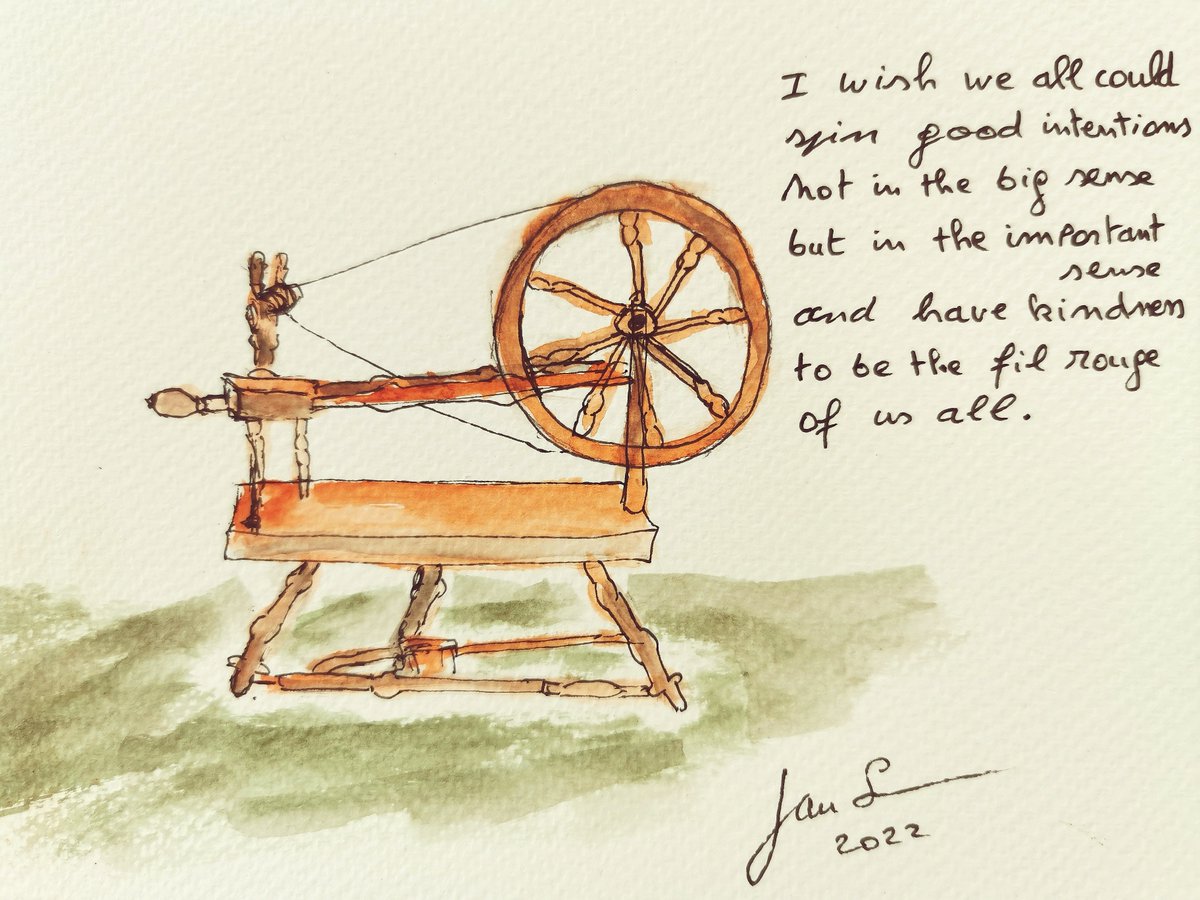 I wish we all could
spin good intentions
not in the big sense
but in the important
sense
and have kindness
to be the fil rouge
of us all.
Jan S
2022